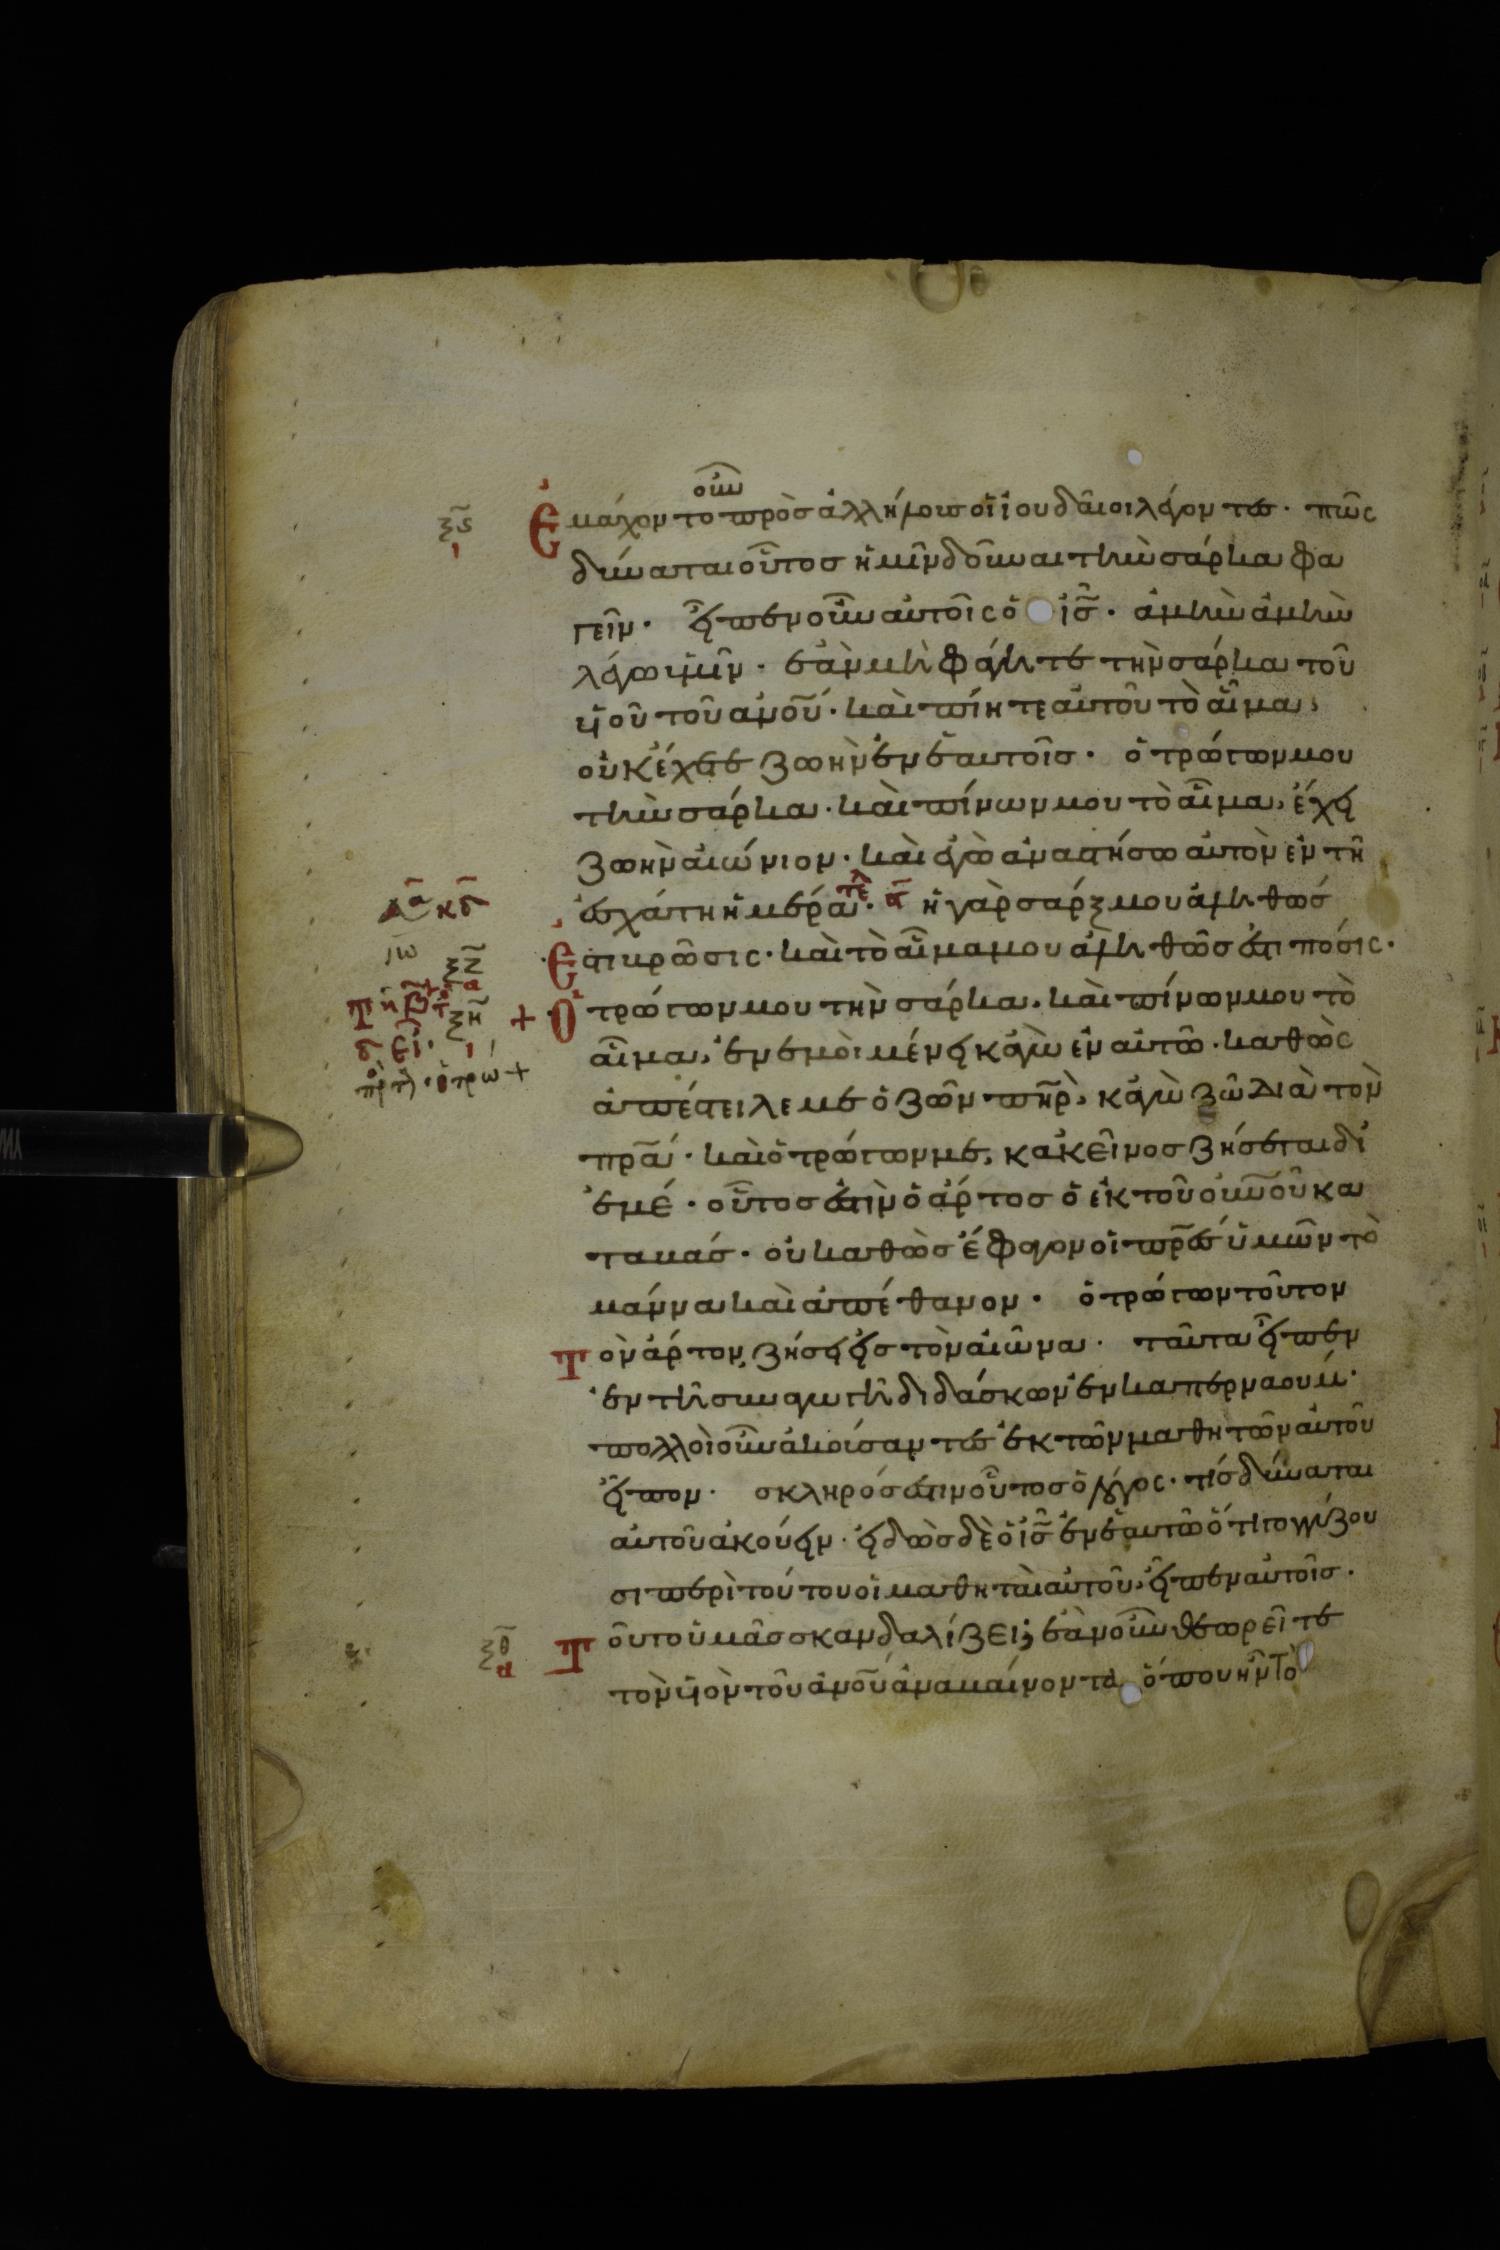 οὖν
ξϛ Ἐμάχοντο πρὸσ ἀλλήλουσ οἱ ἰουδαῖοι λέγοντεσ · πῶς
ι δύναται οὗτοσ ἡμῖν δοῦναι τὴν σάρκα φα
γεῖν · εἶπεν οὖν αὐτοῖς ὁ ἰ̅σ̅ · ἀμὴν ἀμὴν
λέγω ὑμῖν · ἐὰν μὴ φάγητε τὴν σάρκα τοῦ
υἱοῦ τοῦ α̅ν̅ο̅υ̅ · καὶ πίητε αὐτοῦ τὸ αἷμα,
οὐκ ἔχετε ζωὴν ἐν ἑαυτοῖσ · ὁ τρώγων μου
τὴν σάρκα · καὶ πίνων μου τὸ αἷμα, ἔχει
ζωὴν αἰώνιον · καὶ ἐγὼ ἀναστήσω αὐτὸν ἐν τῆ
κδ ἐσχάτη ἡμέρα · τε̅λ ἡ γὰρ σάρξ μου ἀληθῶσ
ἰω ξζ α Ἐστι βρῶσις · καὶ τὸ αἷμα μου ἀληθῶσ ἐστι πόσις ·
τῆ β ξη ι + Ὁ τρώγων μου τὴν σάρκα, καὶ πίνων μου τὸ
αἷμα, ἐν ἐμοὶ μένει κἀγὼ ἐν αὐτῶ · καθὼς
ὁ τρω + ἀπέστειλε με ὁ ζῶν π̅η̅ρ̅, κἀγὼ ζῶ διὰ τὸν
π̅ρ̅α̅ · καὶ ὁ τρώγων με, κἀκεῖνοσ ζήσεται δι
ἐμέ · οὗτοσ ἐστὶν ὁ ἄρτοσ ὁ ἐκ τοῦ ο̅υ̅ν̅ο̅υ̅ κα
ταβάσ · οὐ καθὼσ ἔφαγον οἱ π̅ρ̅ε̅σ̅ ὑμῶν τὸ
μάννα καὶ ἀπέθανον · ὁ τρώγων τοῦτον
Τὸν ἄρτον, ζήσει εἰσ τὸν αἰῶνα · ταῦτα εἶπεν
ἐν τῆ συναγωγῆ διδάσκων ἐν καπερναούμ ·
πολλοὶ οὖν ἀκούσαντεσ ἐκ τῶν μαθητῶν αὐτοῦ
εἶπον · σκληρόσ ἐστιν οὗτοσ ὁ λόγος · τίσ δύναται
αὐτοῦ ἀκούειν · εἰδὼσ δὲ ὁ ἰ̅σ̅ ἐν ἑαυτῶ ὅτι γογγύζου
σι περὶ τούτου οἱ μαθηταὶ αὐτοῦ, εἶπεν αὐτοῖσ ·
ξθ α Τοῦτο ὑμᾶσ σκανδαλίζει; ἐὰν οὖν θεωρεῖτε
τὸν υἱὸν τοῦ α̅ν̅ο̅υ̅ ἀναβαίνοντα ὅπου ἦν τὸ